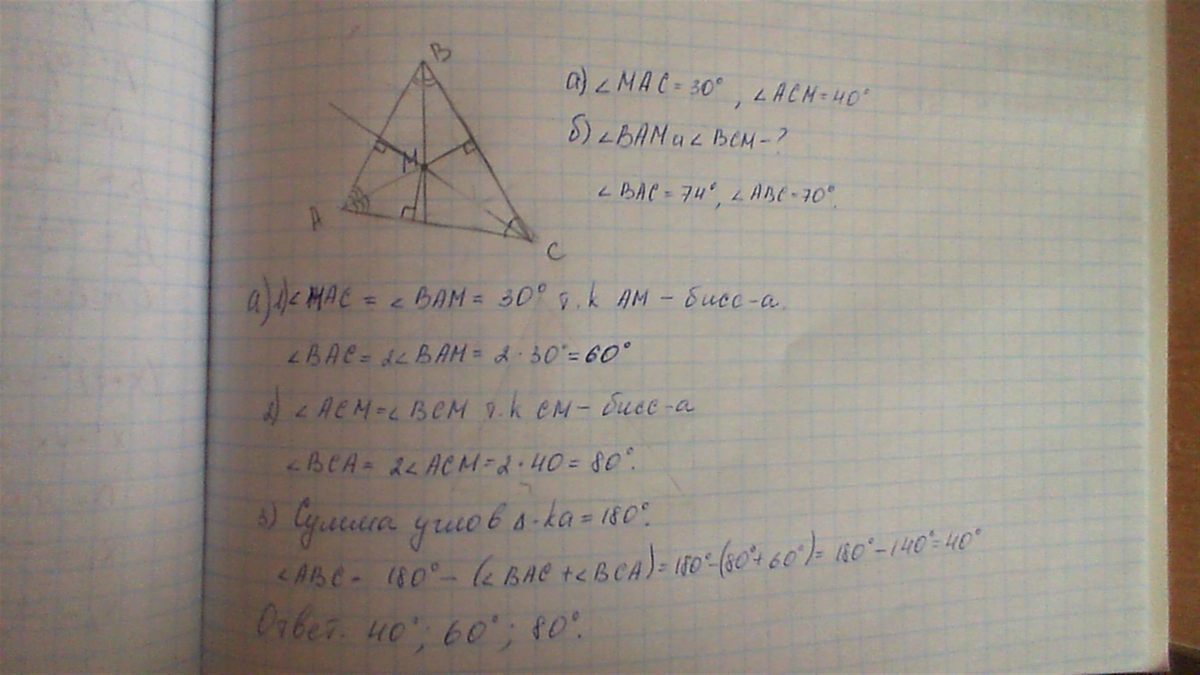 B
M
A
C
а) ∠MAC = 30°, ∠ACM = 40°
б) ∠BAM и ∠BCM - ?
∠BAC = 74°, ∠ABC = 70°.
а) 1) ∠MAC = ∠BAM = 30° т.к AM - бисс-а.
∠BAC = 2∠BAM = 2·30° = 60°
2) ∠ACM = ∠BCM т.к CM - бисс-а
∠BCA = 2∠ACM = 2·40 = 80°.
3) Сумма углов Δ-ка = 180°.
∠ABC = 180° - (∠BAC + ∠BCA) = 180° - (80° + 60°) = 180° - 140° = 40°
Ответ. 40°; 60°; 80°.